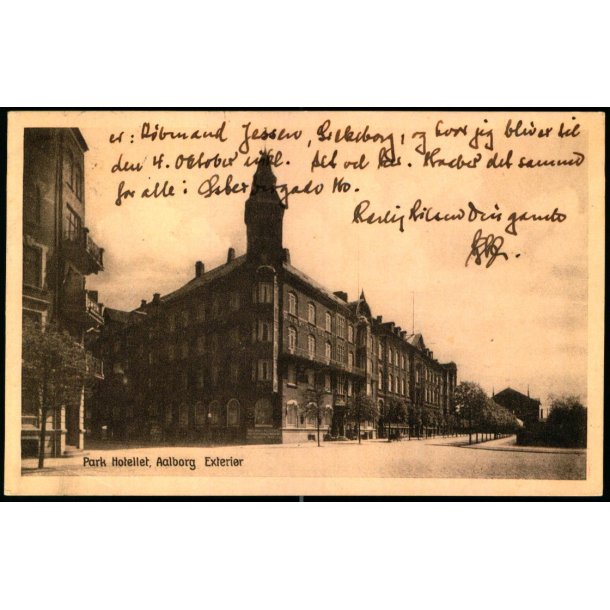 er: Købmand Jessen, Silkeborg, og hvor jeg bliver til
den 4. Oktober incl. Alt vel her. Haaber det samme
for alle i Østerbrogade 110.
Kærlig Hilsen Din gamle
Park Hotellet, Aalborg Exteriør